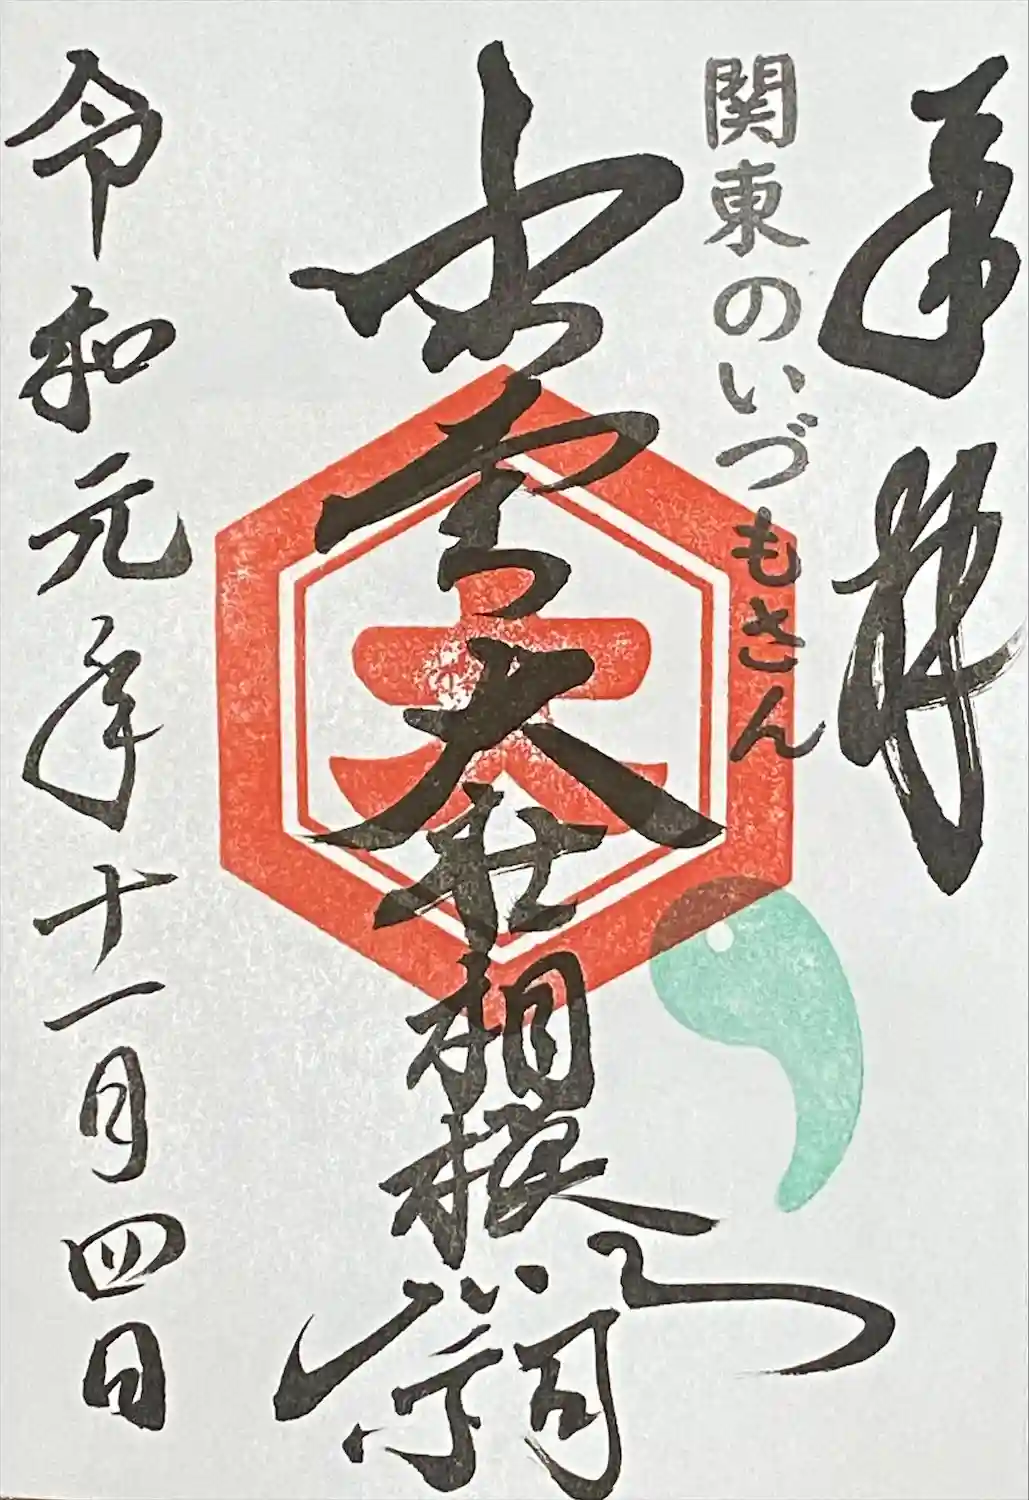 奉拝
関東のいづもさん
出雲大社相模分祠
令和元年十一月四日
大